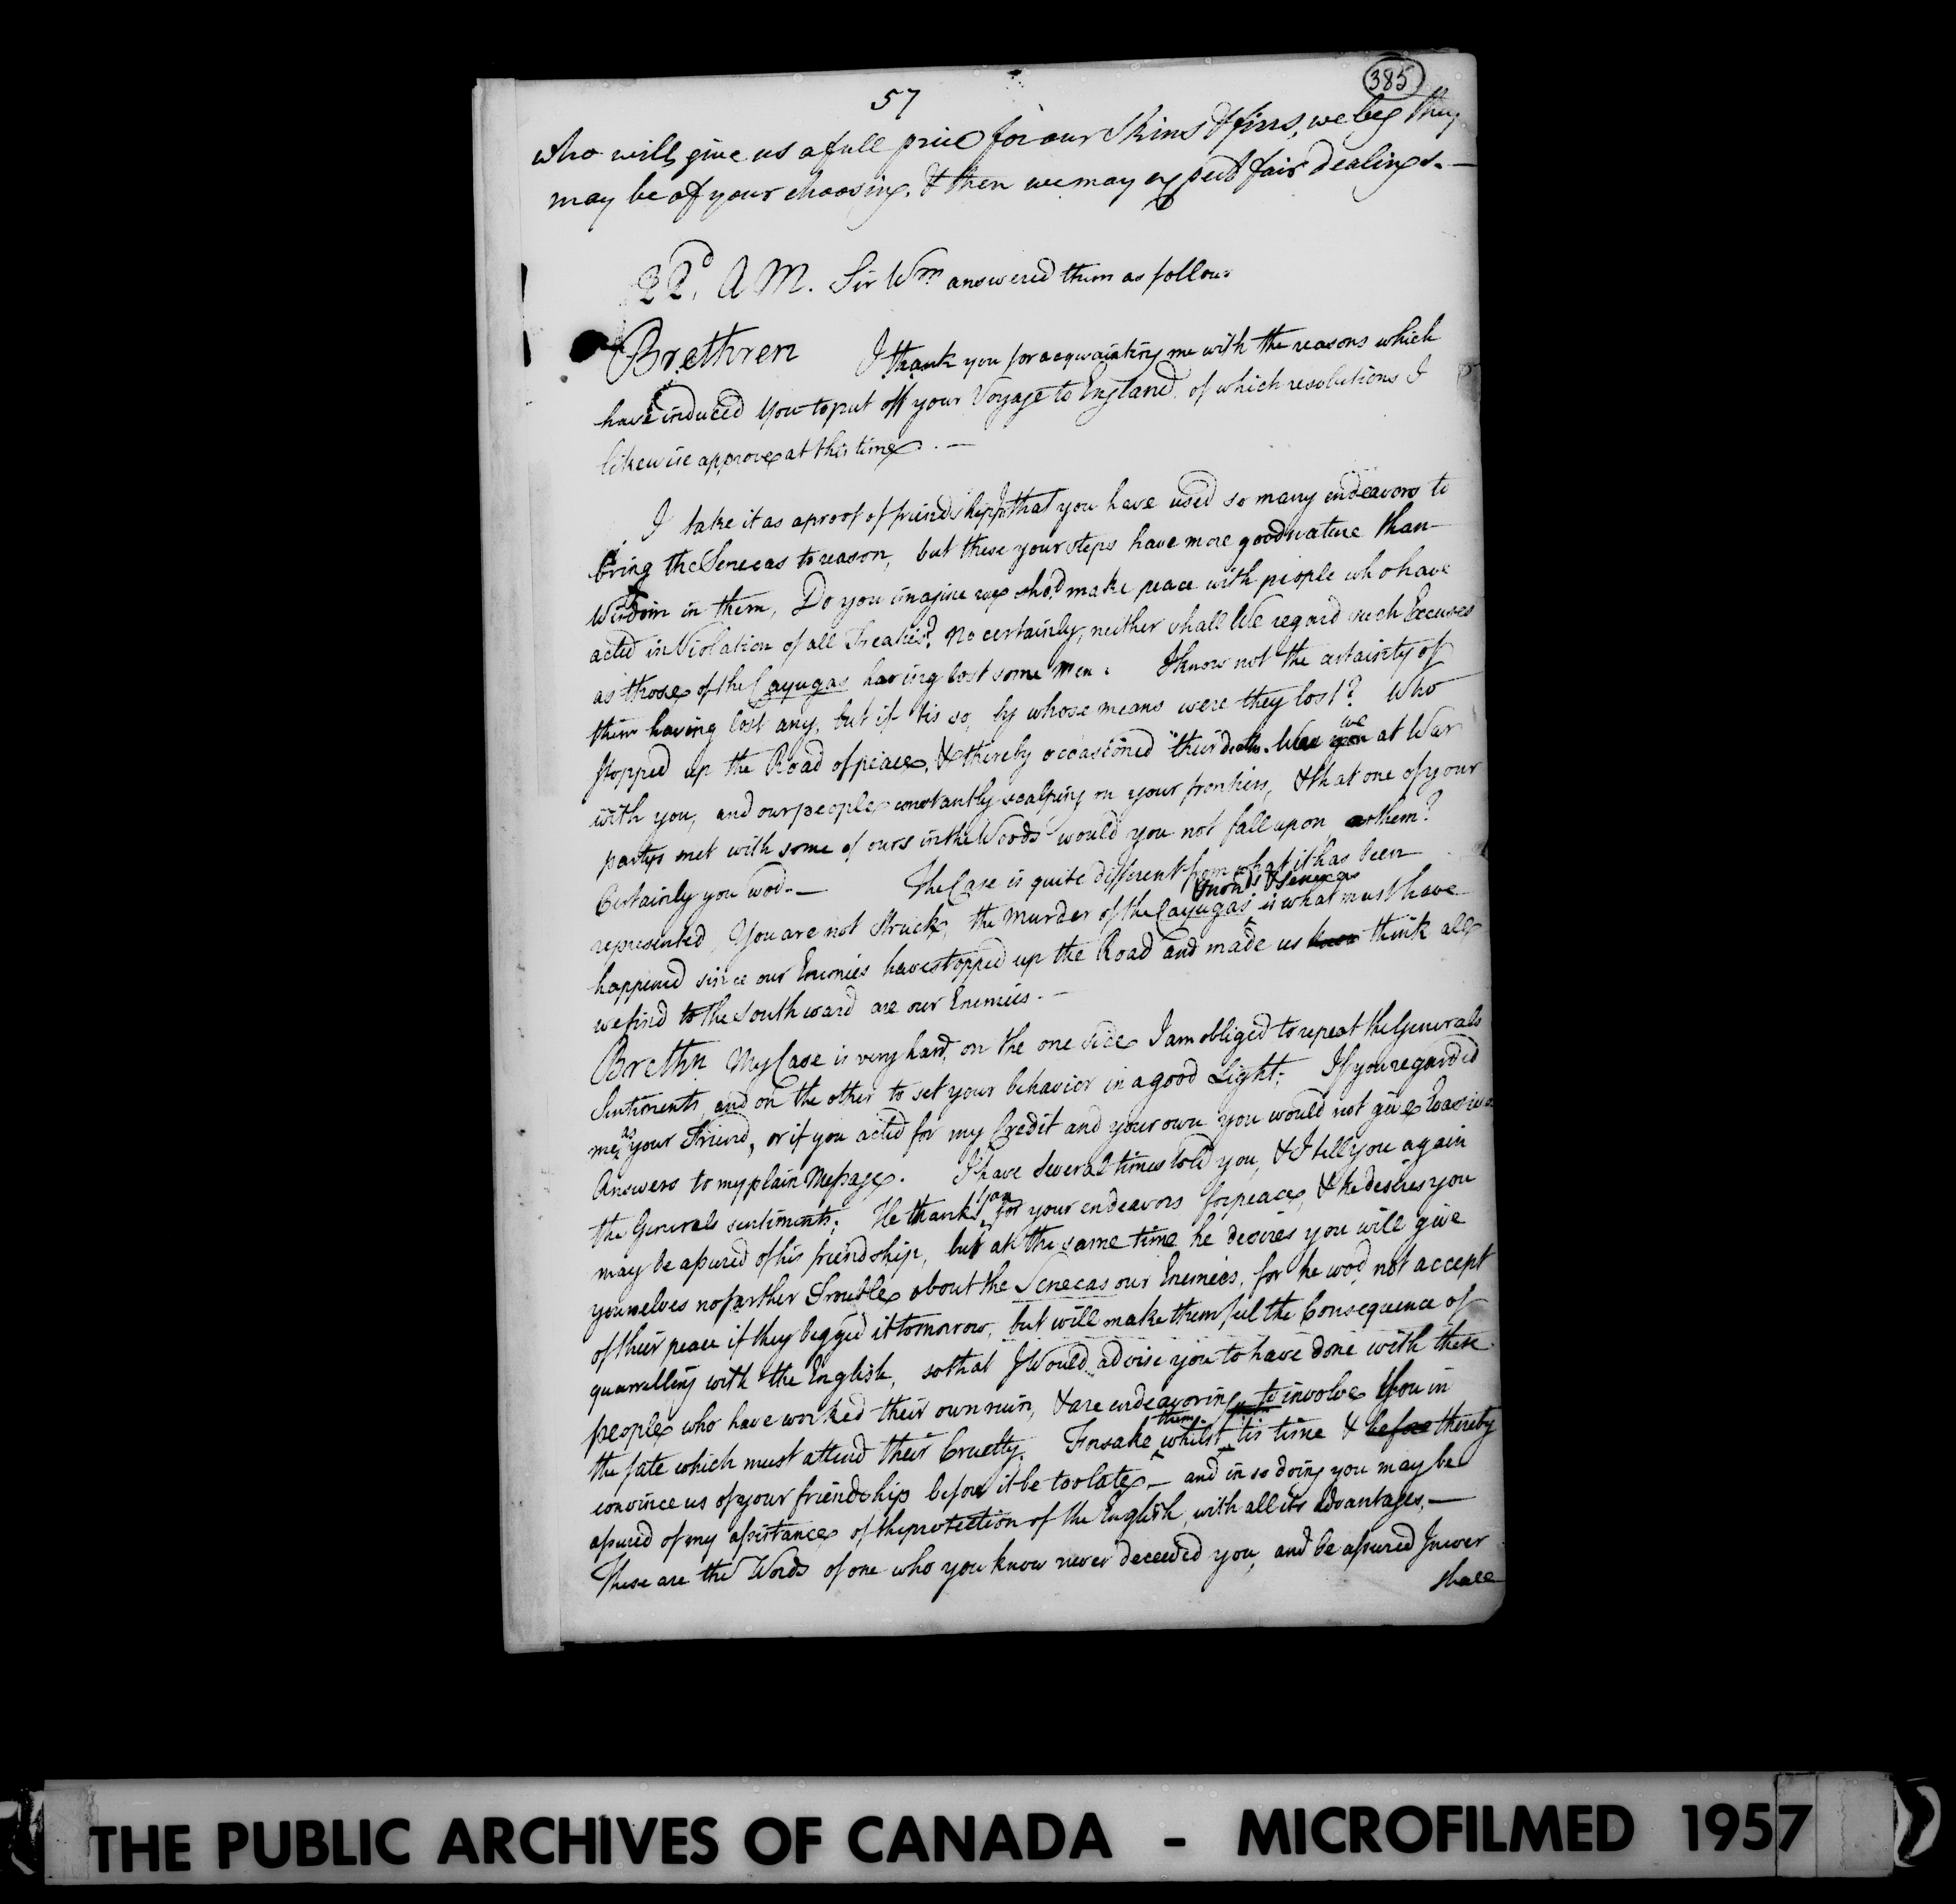 57
385
who will give us a full price for our Skins & furs, we beg they
may be of your choosing. & then we may expect fair dealings. —
22d. A M. Sir Wm. answered them as follows
Brethren I thank you for acquainting me with the reasons which
have induced you to put off your Voyage to England, of which resolutions I
likewise approve at this time. —
I take it as a proof of friendship that you have used so many endeavors to
bring the Senecas to reason, but these your steps have more good nature than
Wisdom in them, Do you imagine we shod. make peace with people who have
acted in Violation of all Treaties? No certainly, neither shall We regard such Excuses
as those of the Cayugas having lost some Men. I know not the certainty of
their having lost any, but if tis so, by whose means were they lost? Who
stopped up the Road of peace, & thereby occasioned their death. Were we at War
with you, and our people constantly scalping on your frontiers, & that one of your
partys met with some of ours in the Woods would you not fall upon them?
Certainly you wod. — The Case is quite different from what it has been
represented, You are not Struck, the Murder of the Cayugas Onond.s & Senecas is what must have
happened since our Enemies have stopped up the Road and made us think all
we find to the Southward are our Enemies. —
Brethn My Case is very hard, on the one side I am obliged to repeat the Generals
Sentiments, and on the other to set your behavior in a good Light; If you regarded
me as your Friend, or if you acted for my Credit and your own you would not give Evasive
Answers to my plain Message. I have several times told you, & I tell you again
the Generals sentiments; He thanks you for your endeavors for peace, & he desires you
may be assured of his friendship, but at the same time he desires you will give
yourselves no farther Trouble about the Senecas our Enemies, for he wod. not accept
of their peace if they begged it tomorrow, but will make them feel the Consequence of
quarrelling with the English, so that I Would advise you to have done with these
people who have worked their own ruin, & are endeavoring to involve You in
the fate which must attend their Cruelty. Forsake them whilst tis time & before thereby
convince us of your friendship before it be too late, — and in so doing you may be
assured of my assistance, of the protection of the English, with all its advantages. —
These are the Words of one who you know never deceived you, and be assured I never
shall
THE PUBLIC ARCHIVES OF CANADA - MICROFILMED 1957